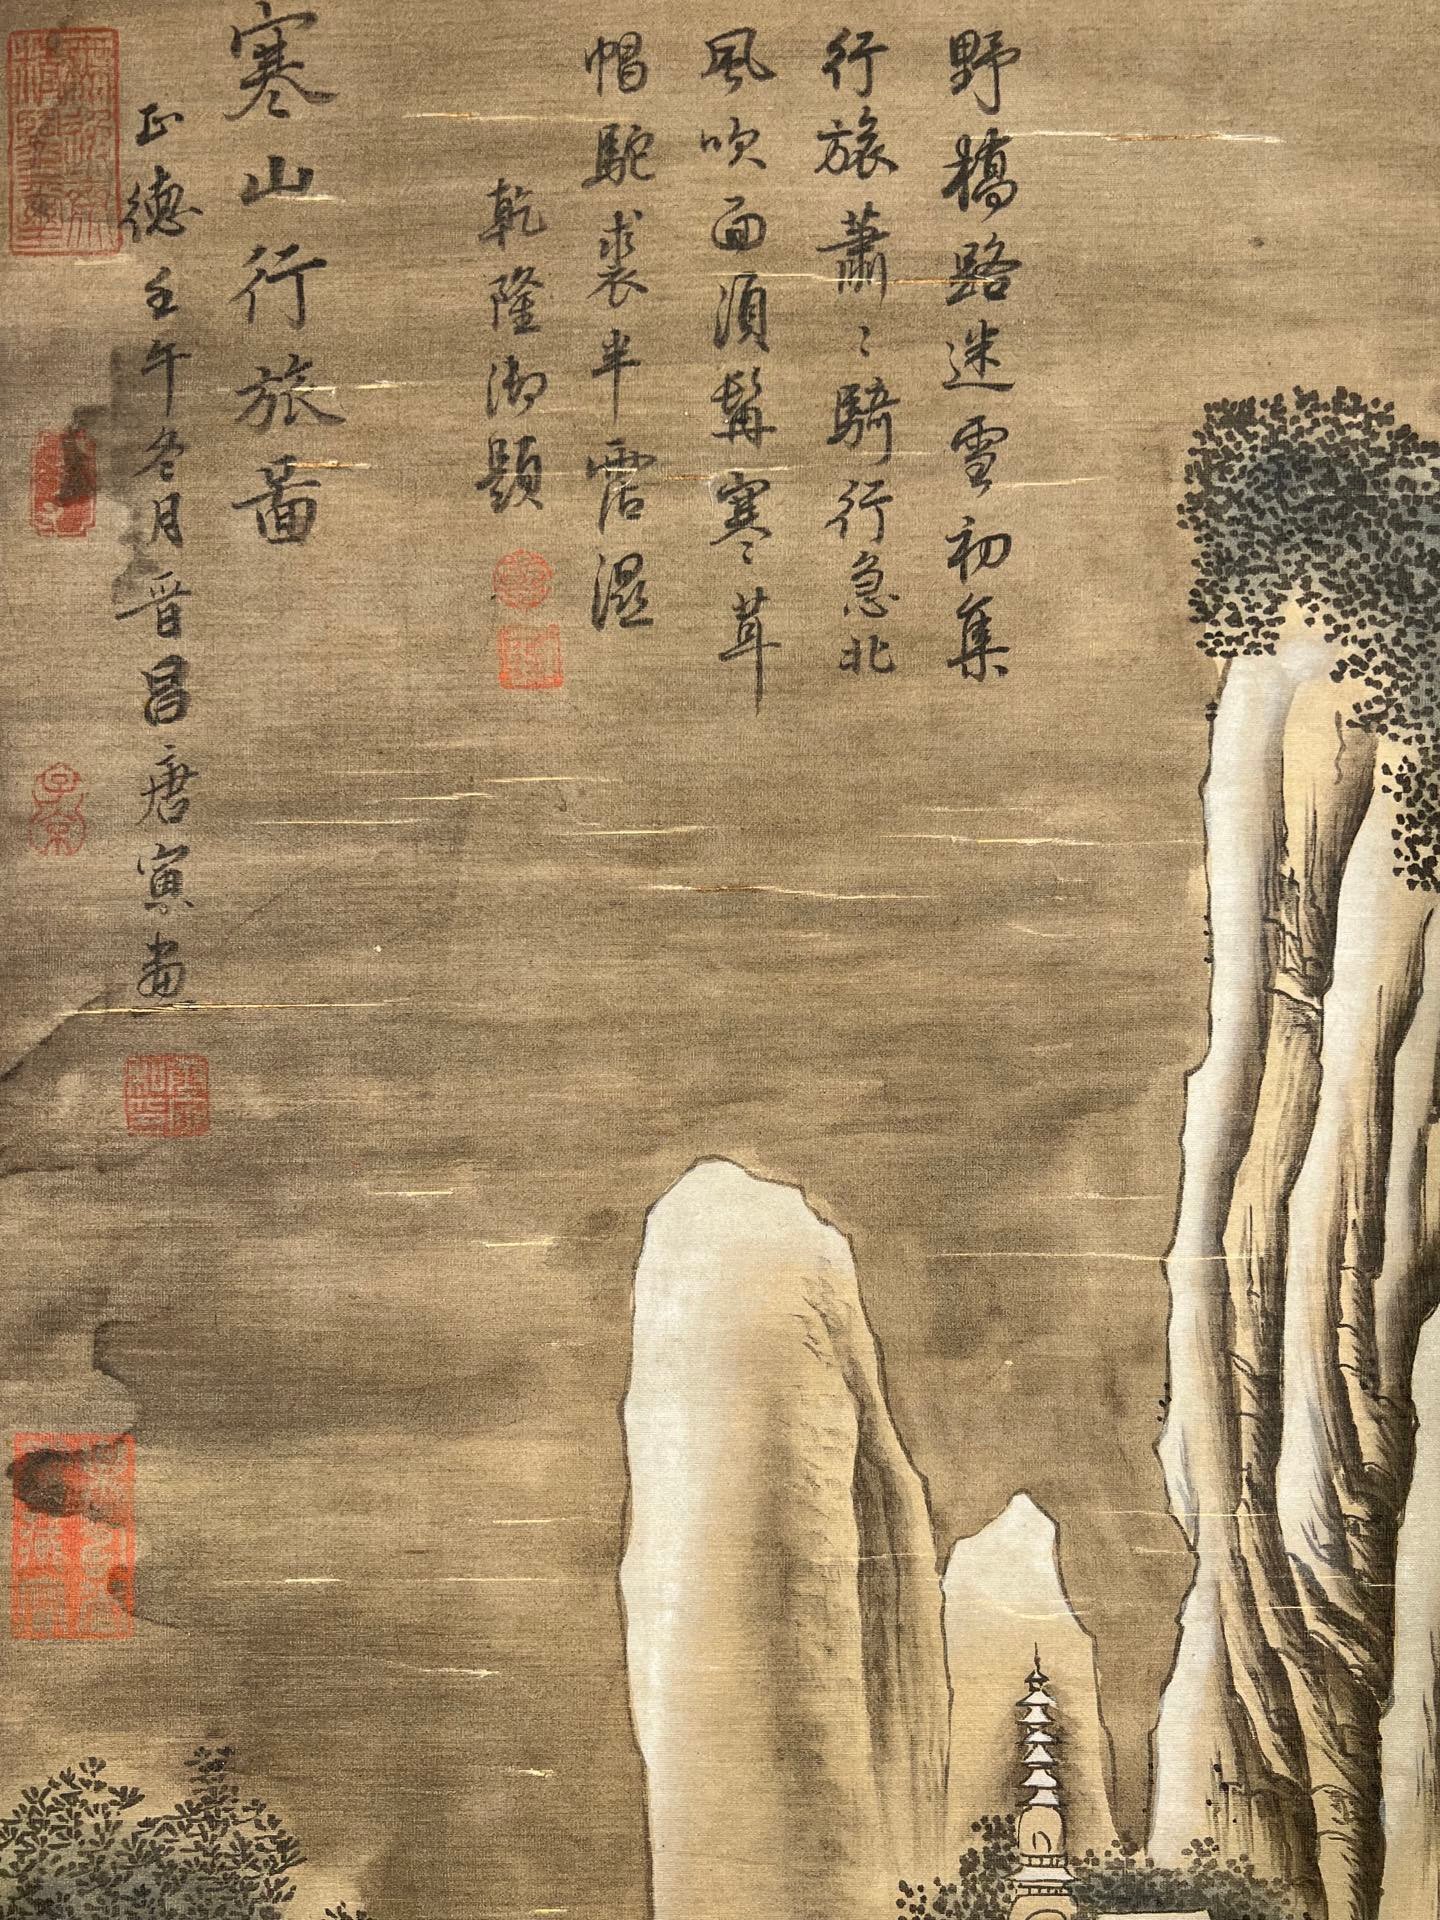 野橋路迷雪初集
行旅蕭〻騎行急北
風吹面須髯寒〻茸
帽駝裘半霑濕
乾隆御題
寒山行旅啚
正德壬午冬月晋昌唐寅畫
子京